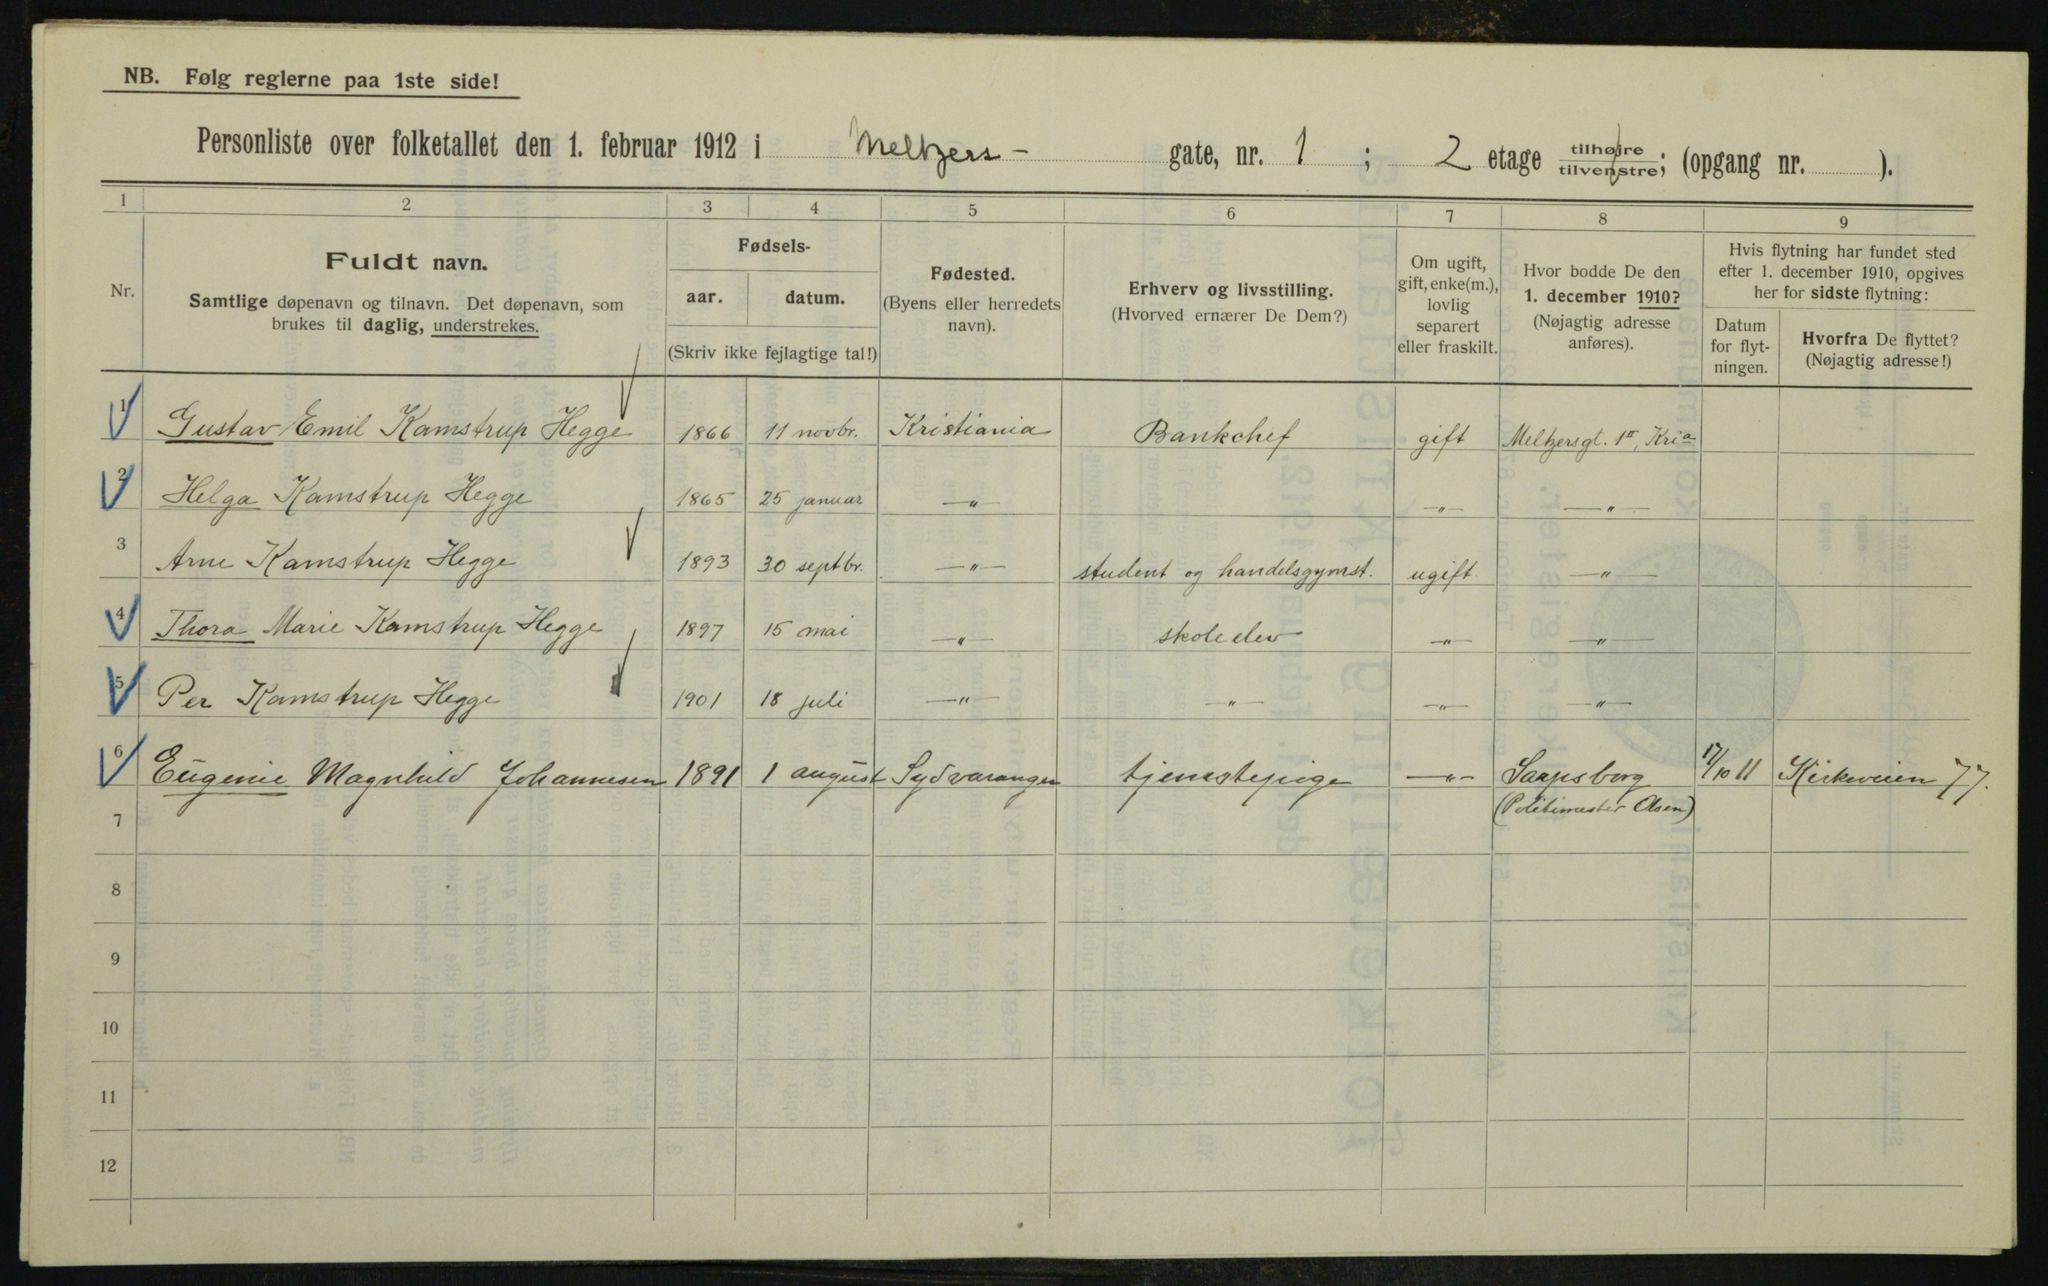 NB. Følg reglerne paa 1ste side!
Personliste over folketallet den 1. februar 1912 i Meltzers- gate, nr. 1 ; 2 etage tilhøire tilvenstre; (opgang nr. ).
1 2 3 4 5 6 7 8 9
Nr.
Fuldt navn.
Samtlige døpenavn og tilnavn. Det døpenavn, som
brukes til daglig, understrekes.
Fødsels-
aar. datum.
(Skriv ikke fejlagtige tal!)
Fødested.
(Byens eller herredets
navn).
Erhverv og livsstilling.
(Hvorved ernærer De Dem?)
Om ugift,
gift, enke(m.),
lovlig
separert
eller fraskilt.
Hvor bodde De den
1. december 1910?
(Nøjagtig adresse
anføres).
Hvis flytning har fundet sted
efter 1. december 1910, opgives
her for sidste flytning:
Datum
for flyt-
ningen.
Hvorfra De flyttet?
(Nøjagtig adresse!)
1 Gustav Emil Kamstrup Hegge 1866 11 novbr. Kristiania Bankchef gift Meltzersgt. 1II, Kria
2 Helga Kamstrup Hegge 1865 25 januar —"— —"— —"—
3 Arne Kamstrup Hegge 1893 30 septbr. —"— student og handelsgymst. ugift —"—
4 Thora Marie Kamstrup Hegge 1897 15 mai —"— skoleelev —"— —"—
5 Per Kamstrup Hegge 1901 18 juli —"— —"— —"— —"—
6 Eugenie Magnhild Johannesen 1891 1 august Sydvaranger tjenestepige —"— Sarpsborg 17/10 11 Kirkeveien 77.
(Politimester Olsen)
7
8
9
10
11
12